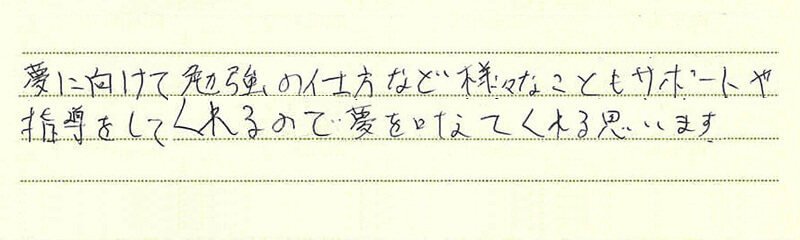 夢に向けて勉強の仕方など様々なこともサポートや
指導をしてくれるので夢を叶なてくれる思います